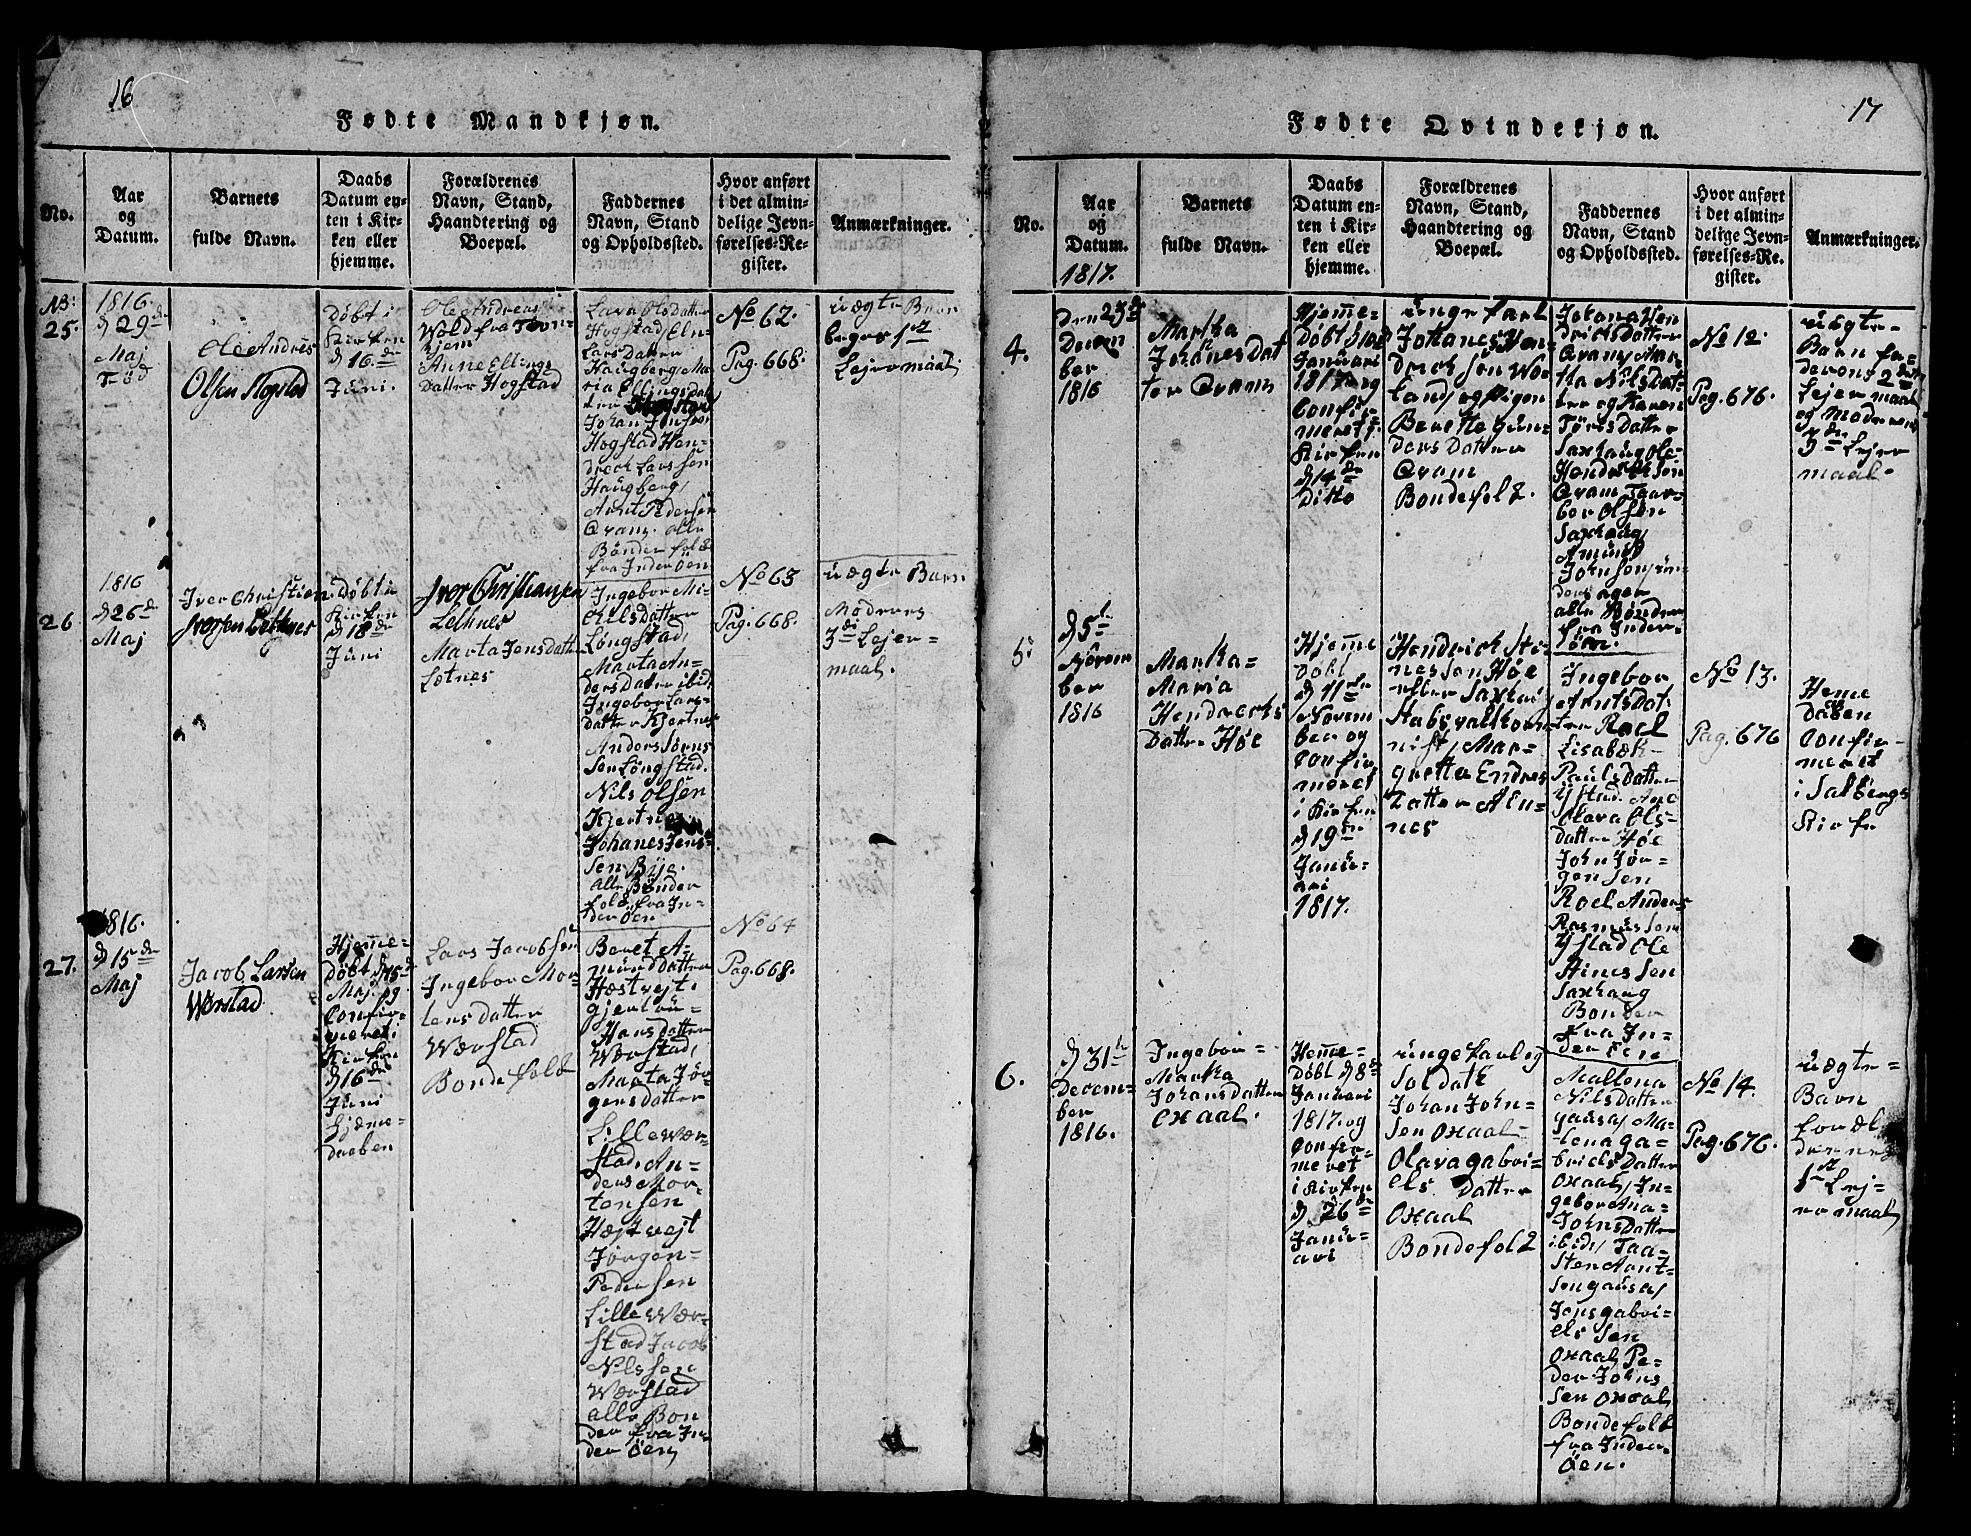 16
Fødte Mandkjøn.
No.
Aar
og
Datum.
Barnets
fulde Navn.
Daabs
Datum en-
ten i Kir-
ken eller
hjemme.
Forældrenes
Navn, Stand,
Haandtering og
Boepæl.
Faddernes
Navn, Stand
og Opholdssted.
Hvor anført
i det almin-
delige Jevn-
førelses-Re-
gister.
Anmærkninger.
25.
1816.
d 29de
Maj
Fød
Ole Andreas
Olsen Hogstad
Døbt i
Kirken
d 16de
Juni.
Ole Andreas
Wold fra Tron-
hjem
Anne Ellings
Datter Hogstad
Lava Ols Datter
Hogstad Eln-
Lars Datter
Haugberg, Ma-
ria Ellingsdat
ter Hogstad
Johan Jensen
Hogstad Hen-
drech Larssen
Haugberg,
Arnt Pedersen
Qvam. alle
Bønder folk
fra Inderøen
No 62.
Pag. 668.
uægte Barn
beges 1te
Lejermaal
26
1816
d 26de
Maj
Iver Christien
Iversen Letnes
Døbt i
Kirken
d 18de
Juni
Iver Christiansen
Letnes
Marta Jensdatter
Letnes
Ingebor Mi-
chelsDatter
Løngstad,
Marta An-
dersDatter ibid,
Ingebor Lars-
datter Kjertnes
Anders Sørns
Sen Løngstad.
Nils Olsen
Kjertnes
Johanes Jens-
sen Bye.
alle Bønder
folk fra In-
derøen
No 63
Pag. 668.
uægte Barn
Modrens
3di Lejer-
maal.
27.
1816.
d 15de
Maj
Jacob Larsen
Wærstad
Hjeme-
døbt d 15de
Maj og
Confir-
meret i
Kirken
d 16de
Juni
hjeme-
daaben
Lars Jacobsen
Ingebor Mor-
tensdatter
Wærstad
Bondefolk
Beret A-
mundDatter
Hæstvejt.
gjertru-
HansDatter
Wærstad,
Marta Jør-
gensdatter
Lille Wær-
stad An-
ders Mor-
tensen
Hæstvejt
Jørgen-
Pedersen
Lille Wær-
stad Jacob
Nilssen
Wærstad
alle Bøn
der fra In
derøen
No 64
Pag. 668.
17
Fødte Qvindekjøn.
No.
Aar
og
Datum.
1817.
Barnets
fulde Navn.
Daabs
Datum en-
ten i Kir-
ken eller
hjemme.
Forældrenes
Navn, Stand,
Haandtering og
Boepæl.
Faddernes
Navn, Stand
og Opholdssted.
Hvor anført
i det almin-
delige Jevn-
førelses-Re-
gister.
Anmærkninger.
4.
Den 23de
Decem
ber
1816
Martha
Johanes Dat
ter Qvam
Hjeme-
Døbt
Januari
1817 og
Confir-
meret i
Kirken
d 14de
Ditto
unge karl
Johanes Hen-
drichsen Wo
land, og pigen
Berette gun-
dersDatter
Qvam
Bondefolk.
Johana Hen
drichs Datter
Qvam, Mar-
tha Nilsdat-
ter og Karen
TøresDatter
Saxhaug Ole-
Hendrichsen
Qvam Taar-
ber Olsen
Saxhaug
Amund
alle Bønder
fra Inder-
øen.
No 12.
Pag. 676.
uægte-
Barn fa-
derens 2det
Lejermaal
og Moderens
3de Lejer
maal.
5.
d 5te
Novem
ber
1816
Martha-
Maria
Hendrechs
Datter Høe
Hjeme
Døbt
d 11te
Novem
ber og
confir
meret
i Kirken
d 19de
Janu-
ari
1817.
Hendrich Sti-
nessen Høe
Mar-
grette Endres
Datter Aln-
nes
Ingebor
Arntsdat-
ter Roel
Lisabæk-
Paulsdatter
Ystad. Ane
Olava Ols-
datter Høe
John Jør-
gensen
Roel Anders
Rasmussen
Ystad Ole
Hinessen
Saxhaug
Bonder
fra In-
derøene
No 13.
Pag. 676
Heme
Daaben
confir-
meret
i Salbergs
Kirke
6.
d 31te
Decem-
ber
1816.
Ingebor-
Martha
JohansDatter
Oxaal.
Heme-
Døbt d 8de
Januari
1817. og
confer-
meret
i Kirken
d 26de
Janu-
ari
unge karl og
Soldat
Johan John-
sen Oxaal-
Olava gabri-
els Datter
Oxaal
Bondefolk
Mallena
NilsDatter
gausa, Ma-
lena ga-
brielsDatter
Oxaal, In-
gebor Ana-
JohnsDatter
ibid, Taa-
sten Arnt-
sen gausa,
Jens gabri-
elssen
Oxaal, Pe-
der Johns
sen Oxaal
Bondefolk
fra Inder-
øen.
No 14.
Pag. 676.
uægte-
Barn
foræl
drenes
1te Lej-
ermaal